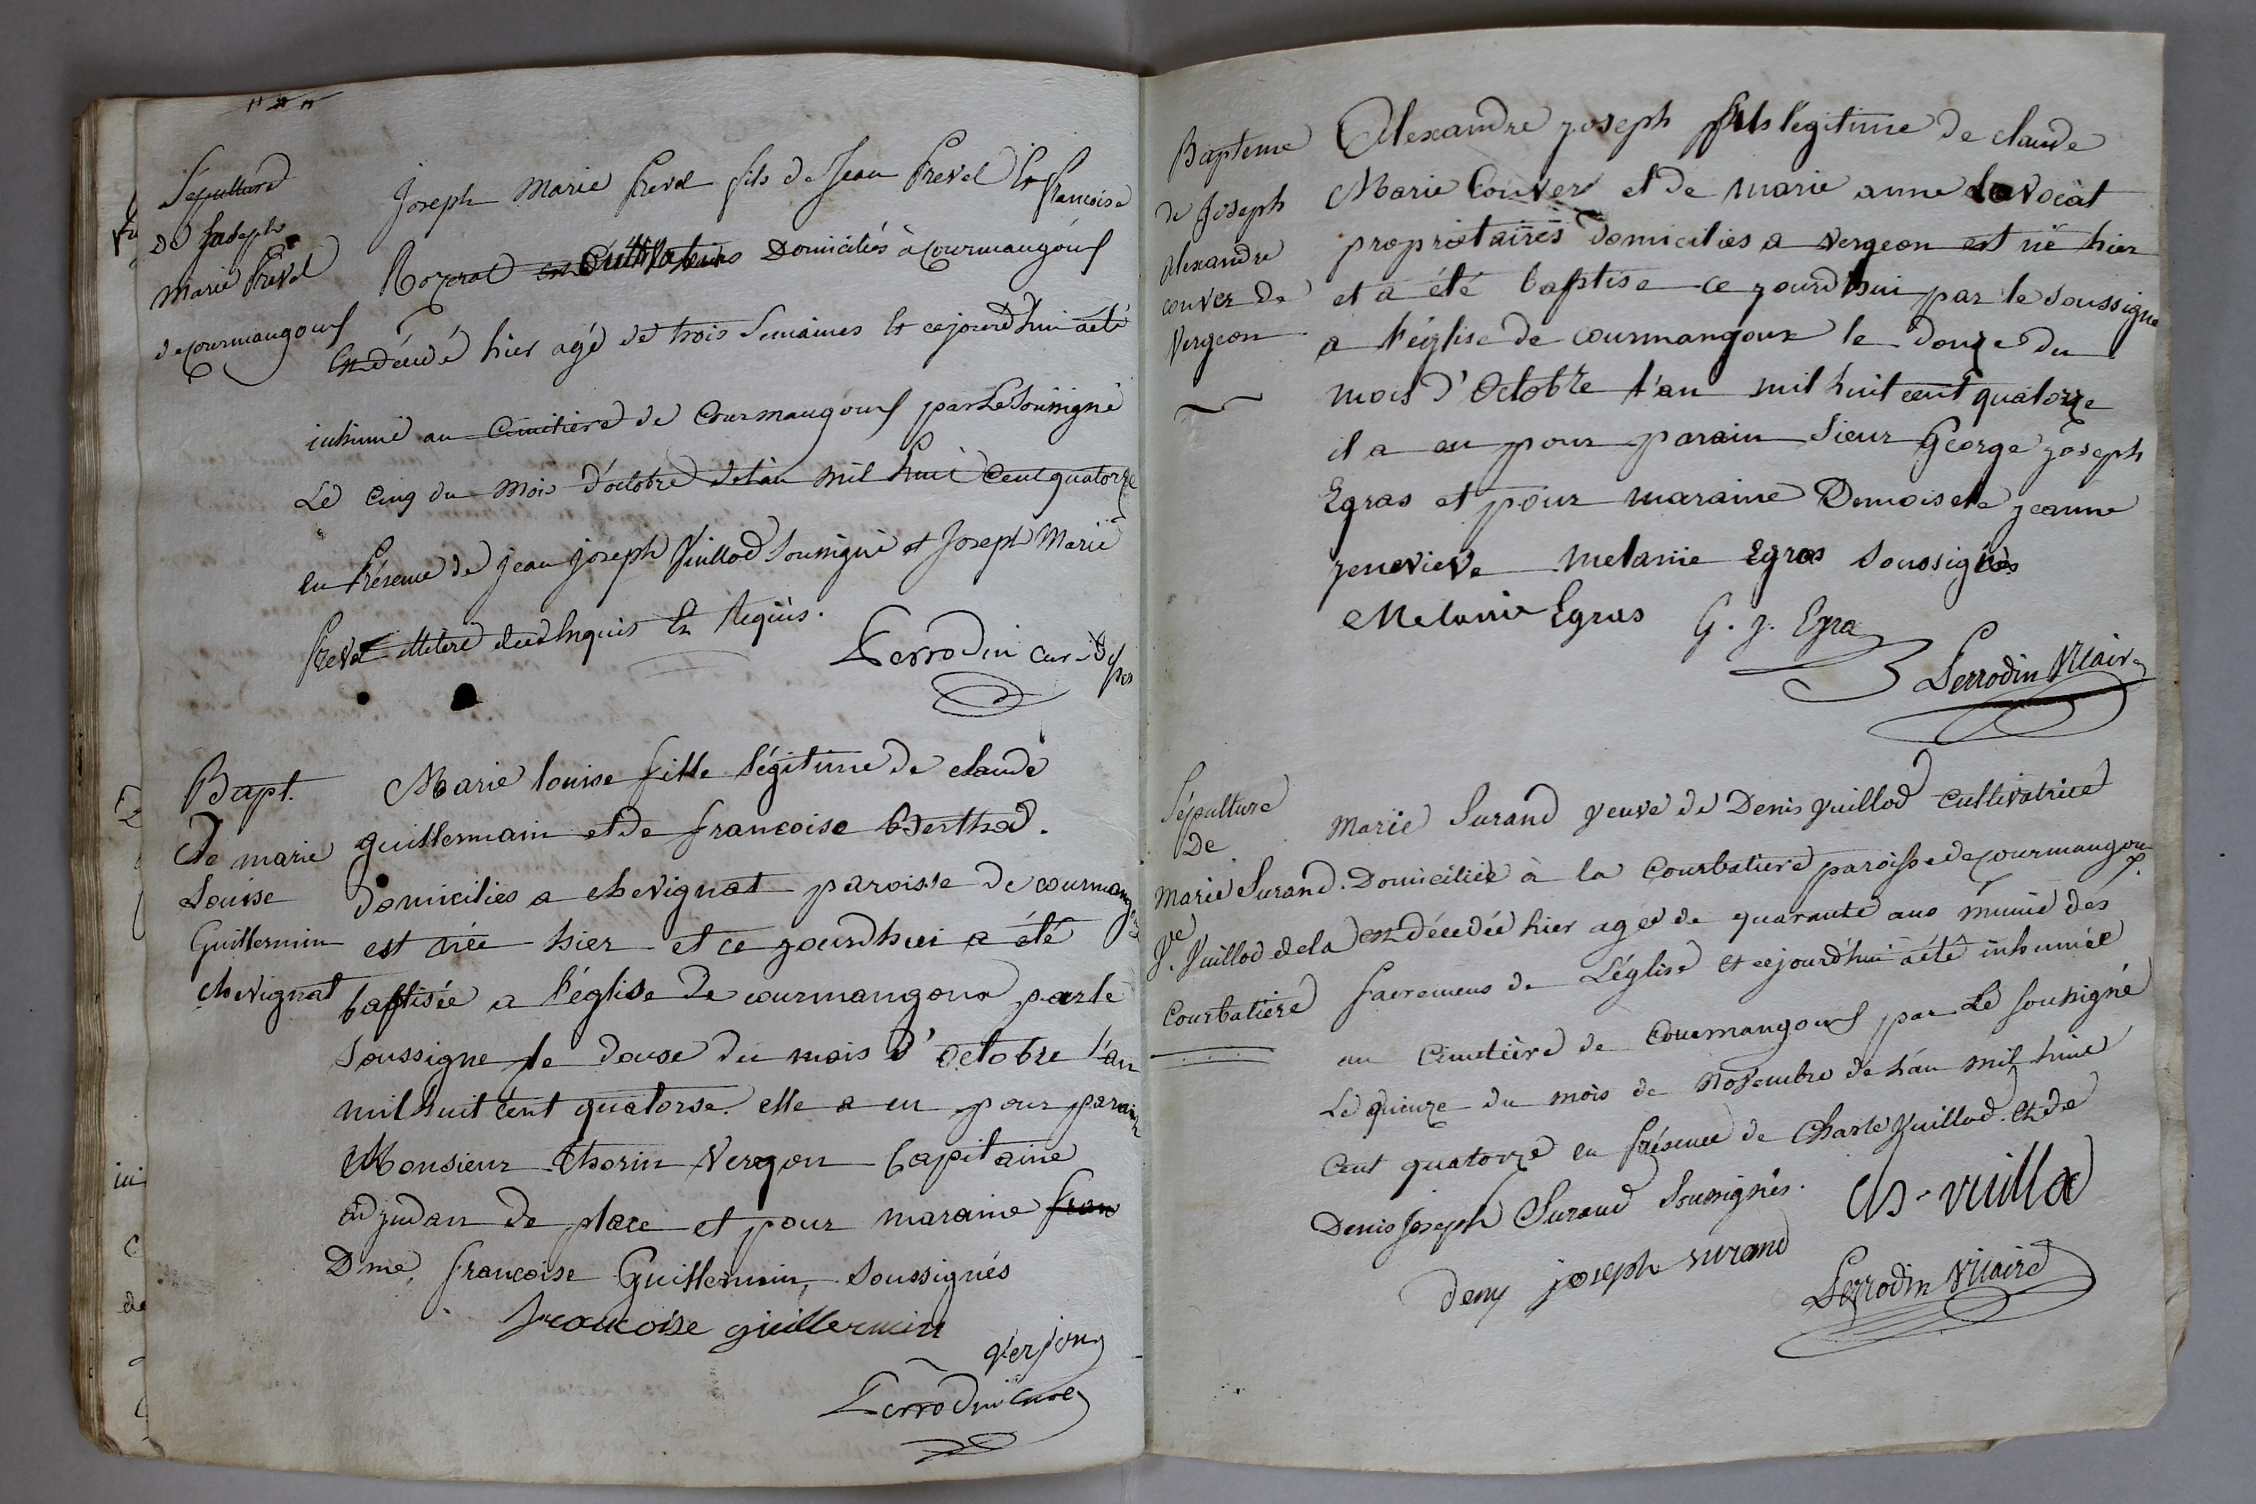 Sépulture
De Joseph
Marie Prevel
de courmangoux
Joseph Marie Prevel fils de Jean Prevel Et francoise
Royerat cultivateurs Domiciliés à Courmangoux
Est décédé hier agé de trois Semaines Et cejourd'hui a été
inhumé au Cimitiere de Courmangoux par Le Soussigné
Le Cinq du Mois d'octobre de l'an Mil huit Cent quatorze
en Présence de Jean joseph Vuillod Soussigné et Joseph Marie
Prevel illitéré de ce Enquis Et Requis.
Perrodin curé
Bapt.
De marie
Louise
Guillermin
chevignat
Marie louise fille légitime de claude
guillermain et de francoise berthod.
domiciliés a chevignat paroisse de courmangoux
est née hier et ce jourdhui a été
baptisée a l'église de courmangoux par le
soussigne le douse du mois d'octobre l'an
mil huit cent quatorse. elle a eu pour parain
Monsieur thorin Vergon Capitaine
adjudan de place et pour maraine fran
Dme, francoise Guillermin, soussignés
francoise guillermin
verjon
Perrodin curé
Bapteme
de Joseph
Alexandre
couver de
Vergeon
Alexandre joseph fils légitime de claude
Marie Couver et de marie anne Lavocat
propriétaires domiciliés a vergeon est né hier
et a été baptise ce jourd'hui par le soussigne
a l'église de courmangoux le douze du
mois d'Octobre l'an mil huit cent quatorze
il a eu pour parain Sieur George joseph
Egras et pour maraine Demoiselle jeanne
genevieve melanie Egras soussignés
Melanie Egras G. J. Egra
Perrodin Vicaire
Sépulture
De
Marie Surand.
Ve. Vuillod de la
Courbatiere
Marie Surand veuve de Denis Vuillod Cultivatrice
Domiciliée à la Courbatiere paroisse de Courmangoux
est décédée hier agée de quarante ans munie des
Sacremens de L'églisé Et cejourd'hui a été inhumée
au Cimetière de Courmangoux par Le Soussigné
Le quinze du mois de Novembre de l'an mil huit
Cent quatorze en présence de Charle Vuillod Et de
Denis Joseph Surand Soussignés.
Ch - vuillod
deny joseph surand
Perrodin Vicaire